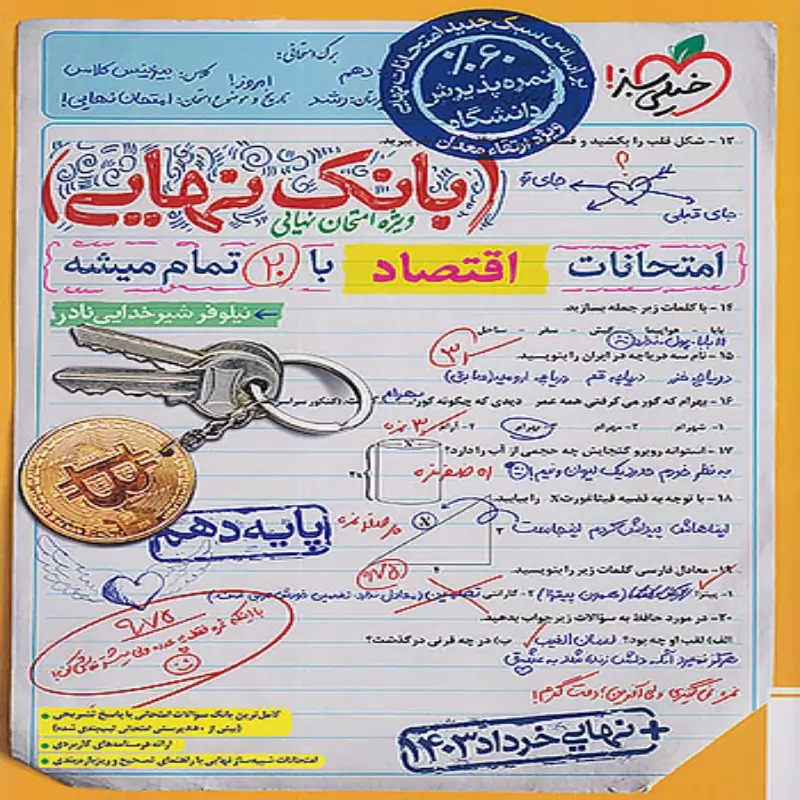 خیلی سبز!
براساس سبک جدید امتحانات نهایی
%۶۰
نمره پذیرش
دانشگاه
ویژه ارتقاء معدل
برگ امتحانی:
دهم
کلاس: بیزینس کلاس
امروز!
رشد
تاریخ و موضوع امتحان: امتحان نهایی!
۱۳ - شکل قلب را بکشید و
ببرید.
؟
جای تو
جای قبلی
(بانک نهایی)
ویژه امتحان نهایی
امتحانات اقتصاد با ۲۰ تمام میشه
نیلوفر شیرخدایی نادر
۱۴ - با کلمات زیر جمله بسازید.
بابا - هواپیما - کیش - سفر - ساحل
بابا پول ندارد
۳
۱۵ - نام سه دریاچه در ایران را بنویسید.
دریای خزر دریاچه قم دریاچه ارومیه (سابق)
۱۶ - بهرام که گور می گرفتی همه عمر دیدی که چگونه گور بهرام (کنکور سراسر
۱- شهرام ۲- مهرام ۳- بهرام ۴- آرام
۳ نمره
۱۷ - استوانه روبرو گنجایش چه حجمی از آب را دارد؟
به نظر خودم حدود یک لیوان و نیم!
x
۱۸ - با توجه به قضیه فیثاغورث X را بیابید.
ایناهاش پیداش کردم اینجاست
X
۳
۴
۹/۷۵
پایه دهم
۱۹ - معادل فارسی کلمات زیر را بنویسید.
۱- پیتزا: (همون پیتزا) ۲- گارانتی
۲۰ - در مورد حافظ به سؤالات زیر جواب بدهید.
الف) لقب او چه بود؟ لسان الغیب ب) در چه قرنی درگذشت؟
هرگز نمیرد آنکه دلش زنده شد به عشق
۹/۷۵
نمره نمی‌گیری ولی آفرین! دمت گرم!
کامل‌ترین بانک سؤالات امتحانی با پاسخ تشریحی
ارائه درسنامه‌های کاربردی
امتحانات شبیه‌ساز نهایی با راهنمای تصحیح و ریزبارم‌بندی
+ نهایی خرداد ۱۴۰۳